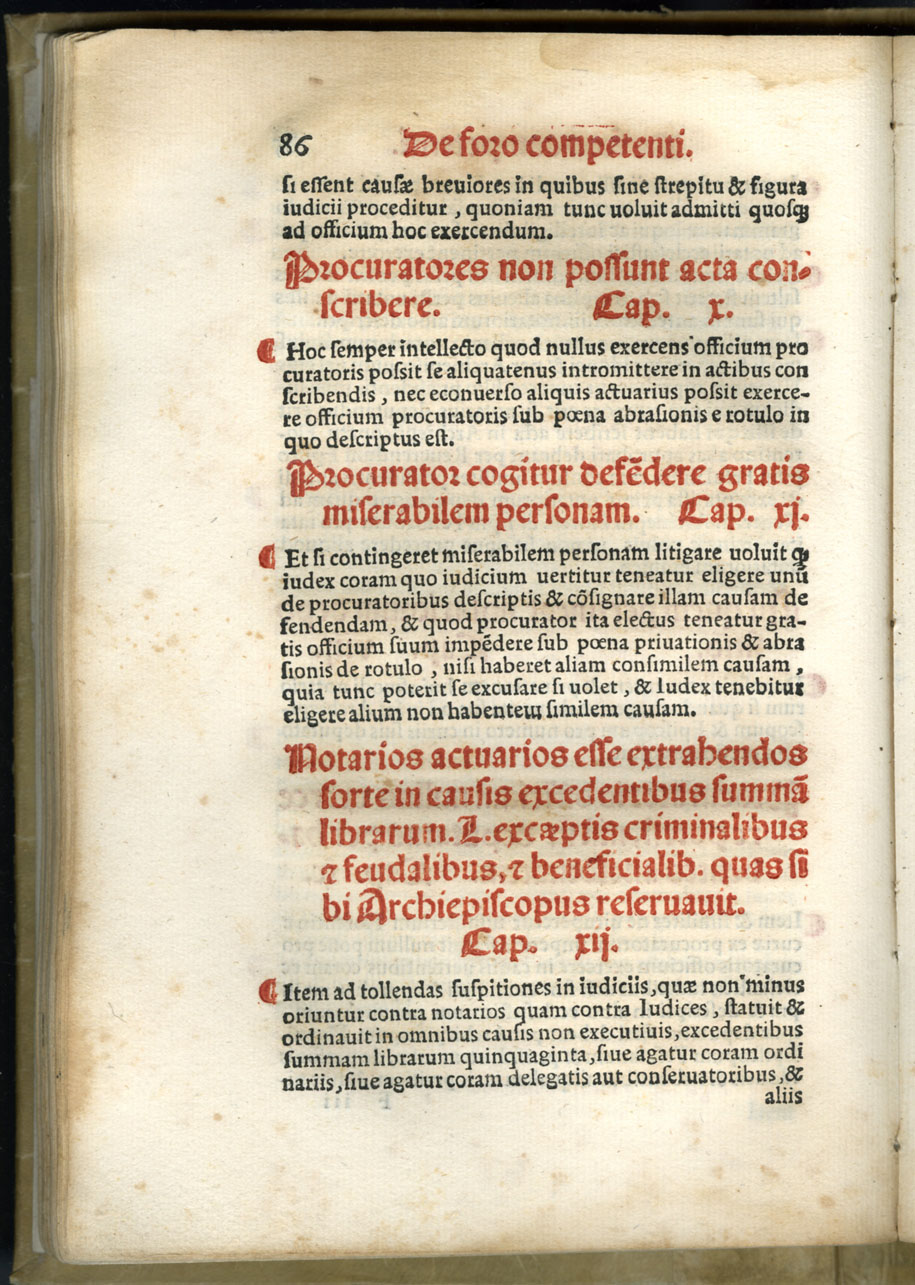 86 De foro competenti.
si essent causæ breuiores in quibus sine strepitu & figura
iudicii proceditur , quoniam tunc uoluit admitti quosqꝫ
ad officium hoc exercendum.
Procuratores non possunt acta con-
scribere. Cap. x.
¶ Hoc semper intellecto quod nullus exercens officium pro
curatoris possit se aliquatenus intromittere in actibus con
scribendis , nec econuerso aliquis actuarius possit exerce-
re officium procuratoris sub pœna abrasionis e rotulo in
quo descriptus est.
Procurator cogitur defēdere gratis
miserabilem personam. Cap. xj.
¶ Et si contingeret miserabilem personam litigare uoluit qꝫ
iudex coram quo iudicium uertitur teneatur eligere unū
de procuratoribus descriptis & cōsignare illam causam de
fendendam, & quod procurator ita electus teneatur gra-
tis officium suum impēdere sub pœna priuationis & abra
sionis de rotulo , nisi haberet aliam consimilem causam ,
quia tunc poterit se excusare si uolet , & Iudex tenebitur
eligere alium non habentem similem causam.
Notarios actuarios esse extrahendos
sorte in causis excedentibus summā
librarum. L. excæptis criminalibus
⁊ feudalibus, ⁊ beneficialib. quas si
bi Archiepiscopus reseruauit.
Cap. xij.
¶ Item ad tollendas suspitiones in iudiciis, quæ non minus
oriuntur contra notarios quam contra Iudices , statuit &
ordinauit in omnibus causis non executiuis, excedentibus
summam librarum quinquaginta, siue agatur coram ordi
nariis, siue agatur coram delegatis aut conseruatoribus, &
aliis